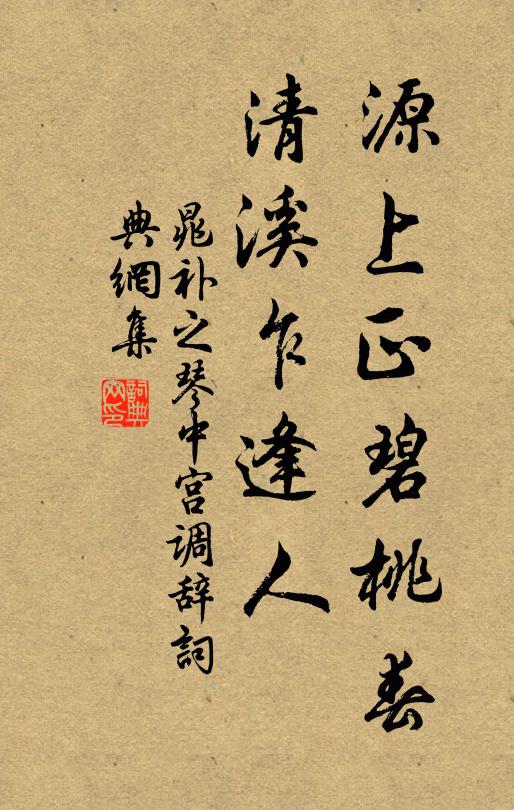 源上正碧桃春
清溪乍逢人
晁补之琴中宫调辞詞
典網集
詞典网印